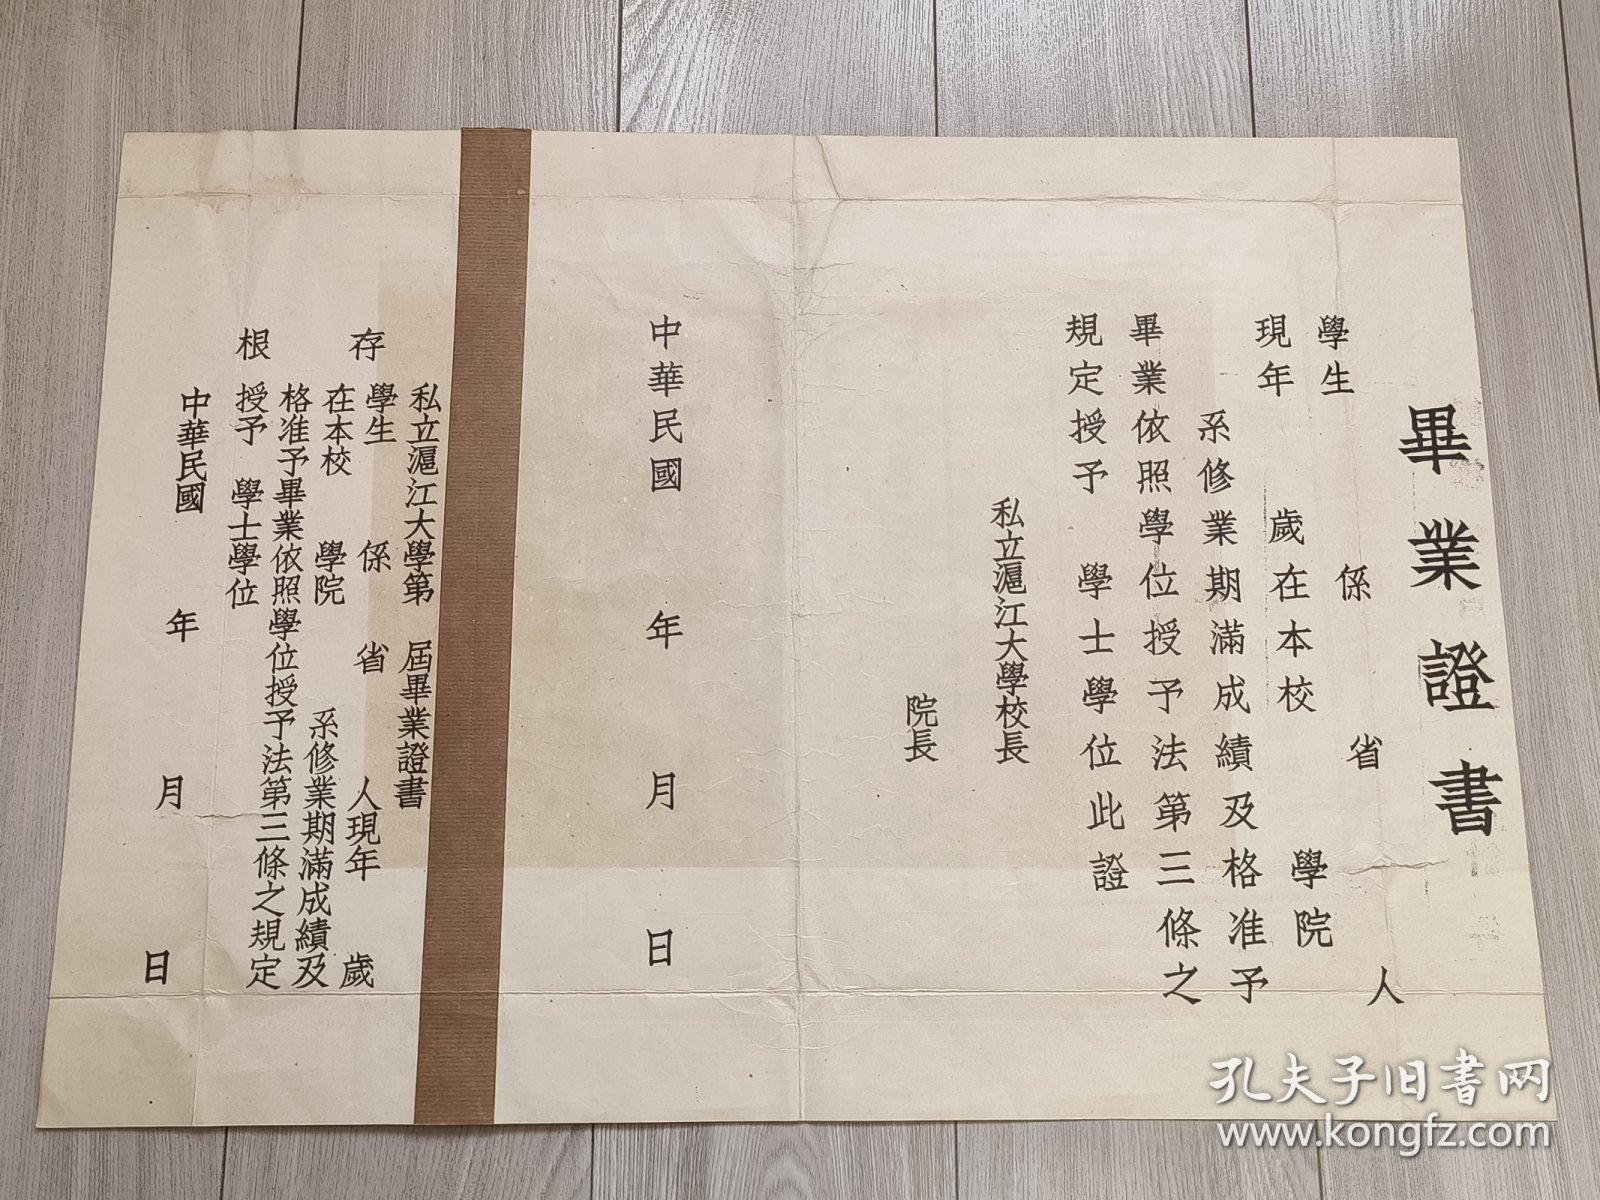 畢業證書
學生 係 省 人
現年 歲在本校 學院
系修業期滿成績及格准予
畢業依照學位授予法第三條之
規定授予 學士學位此證
私立滬江大學校長
院長
中華民國 年 月 日
存根
私立滬江大學第 屆畢業證書
學生 係 省 人現年 歲
在本校 學院 系修業期滿成績及
格准予畢業依照學位授予法第三條之規定
授予 學士學位
中華民國 年 月 日
孔夫子旧书网
www.kongfz.com